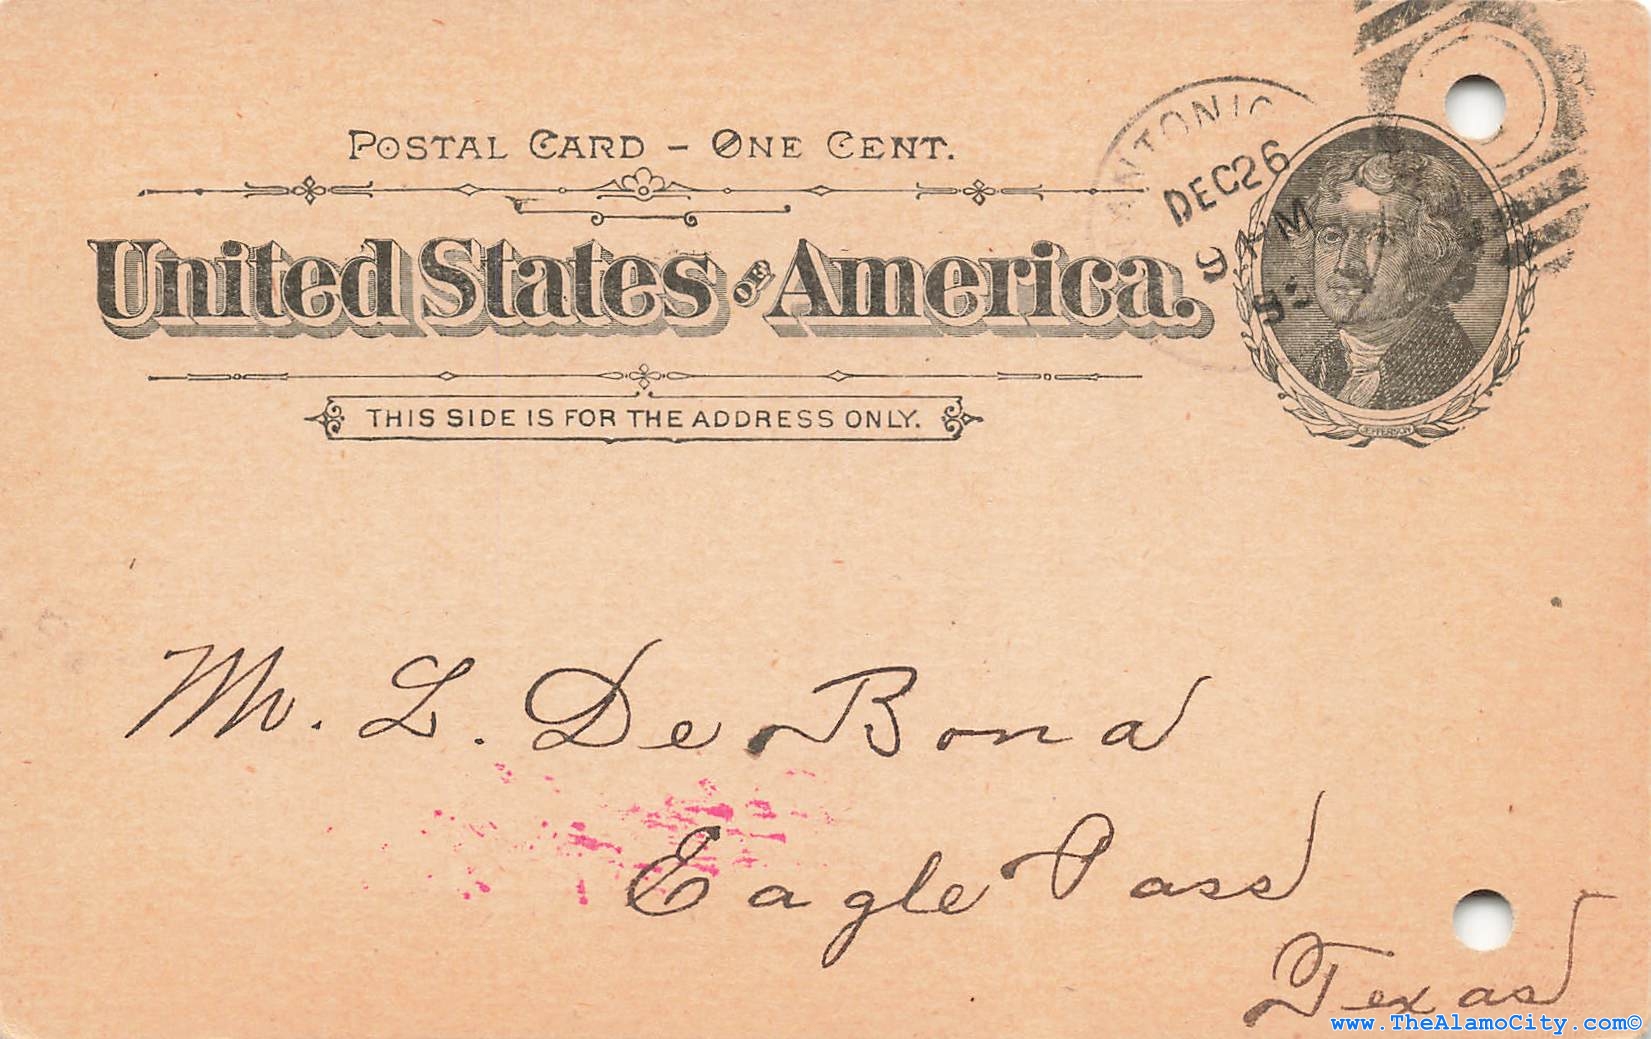 POSTAL CARD - ONE CENT.
United States OF America.
THIS SIDE IS FOR THE ADDRESS ONLY.
ANTONIO
DEC 26
9 M
JEFFERSON
Mr. L. De Bona
Eagle Pass
Texas
www.TheAlamoCity.com©